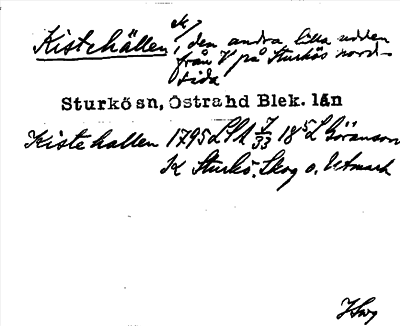 Kistehällen, den andra lilla udden
från V på Sturkös nord-
sida
Sturkö sn, Östra hd Blek. län
Kistehallen 1795 LSA 7/33 18⁵ L Göranson
K Sturkö. Skog o. Utmark